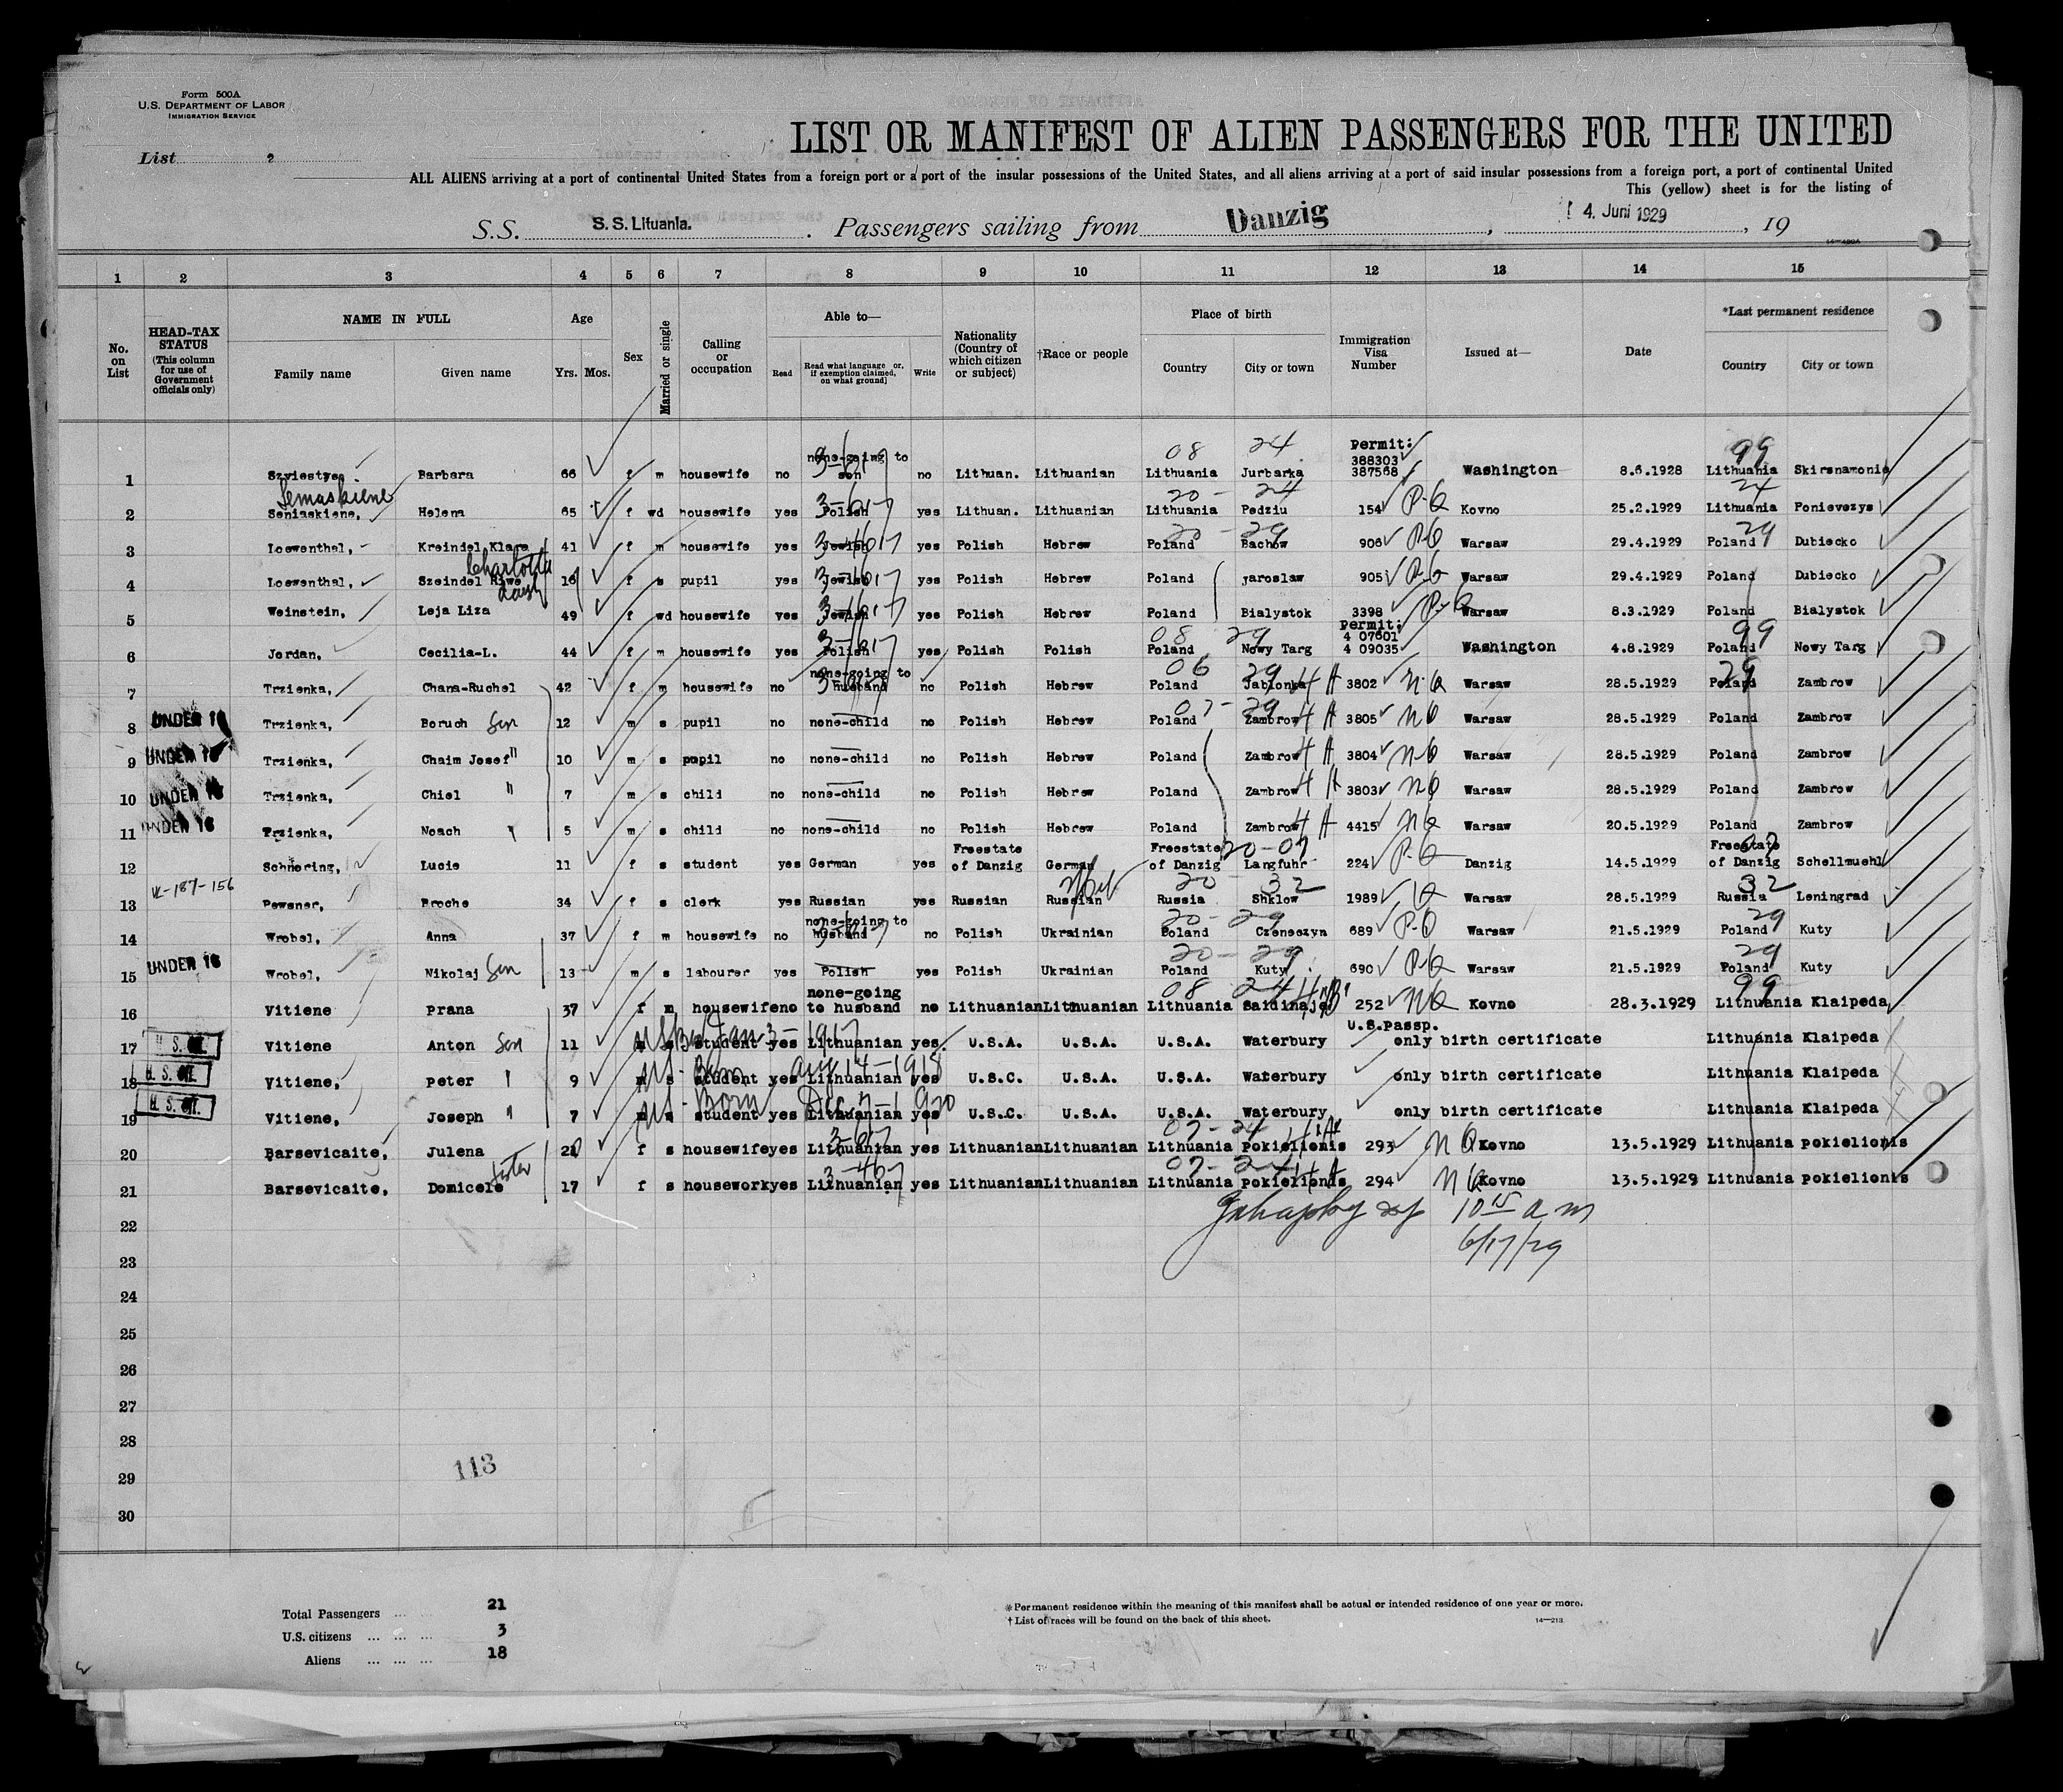 Form 500A
U.S. DEPARTMENT OF LABOR
IMMIGRATION SERVICE
LIST OR MANIFEST OF ALIEN PASSENGERS FOR THE UNITED
List 2
ALL ALIENS arriving at a port of continental United States from a foreign port or a port of the insular possessions of the United States, and all aliens arriving at a port of said insular possessions from a foreign port, a port of continental United
This (yellow) sheet is for the listing of
S.S. S. S. Lituania. Passengers sailing from Danzig, 4. Juni 1929, 19
1 2 3 4 5 6 7 8 9 10 11 12 13 14 15
No. on List
HEAD-TAX STATUS (This column for use of Government officials only)
NAME IN FULL
Family name Given name
Age
Yrs. Mos.
Sex
Married or single
Calling or occupation
Able to—
Read Read what language or, if exemption claimed, on what ground] Write
Nationality (Country of which citizen or subject)
†Race or people
Place of birth
Country City or town
Immigration Visa Number
Issued at—
Date
*Last permanent residence
Country City or town
08 24 Permit: 99
none-going to 388303
1 Barbara 66 f m housewife no son no Lithuan. Lithuanian Lithuania Jurbarka 387568 Washington 8.6.1928 Lithuania Skirsnamonie
Semaskiene 20 - 24 24
2 Seniaskiene, Helena 65 f wd housewife yes Polish yes Lithuan. Lithuanian Lithuania Pedziu 154 P-Q Kovno 25.2.1929 Lithuania Ponievezys
20 - 29 29
3 Loewenthal, Kreindel Klara 41 f m housewife yes Jewish yes Polish Hebrew Poland Bachow 906 Warsaw 29.4.1929 Poland Dubiecko
Charlotte
4 Loewenthal, Szeindel Riwe 16 f s pupil yes Jewish yes Polish Hebrew Poland Jaroslaw 905 Warsaw 29.4.1929 Poland Dubiecko
5 Weinstein, Leja Liza 49 f wd housewife yes Jewish yes Polish Hebrew Poland Bialystok 3398 Warsaw 8.3.1929 Poland Bialystok
08 29 Permit: 4 07601 99
6 Jordan, Cecilia-L. 44 f m housewife yes Polish yes Polish Polish Poland Nowy Targ 4 09035 Washington 4.8.1929 Poland Nowy Targ
none-going to 06 29 29
7 Trzienka, Chana-Ruchel 42 f m housewife no husband no Polish Hebrew Poland Jablonka 3802 Warsaw 28.5.1929 Poland Zambrow
07 - 29
8 UNDER 16 Trzienka, Boruch Son 12 m s pupil no none-child no Polish Hebrew Poland Zambrow 3805 Warsaw 28.5.1929 Poland Zambrow
9 UNDER 16 Trzienka, Chaim Josef " 10 m s pupil no none-child no Polish Hebrew Poland Zambrow 3804 Warsaw 28.5.1929 Poland Zambrow
10 UNDER 16 Trzienka, Chiel " 7 m s child no none-child no Polish Hebrew Poland Zambrow 3803 Warsaw 28.5.1929 Poland Zambrow
11 UNDER 16 Trzienka, Noach " 5 m s child no none-child no Polish Hebrew Poland Zambrow 4415 Warsaw 20.5.1929 Poland Zambrow
Freestate Freestate 20-07 Freestate
12 Schnering, Lucie 11 f s student yes German yes of Danzig German of Danzig Langfuhr 224 Danzig 14.5.1929 of Danzig Schellmuehl
20 - 32 32
13 Pewsner, Broche 34 f s clerk yes Russian yes Russian Russian Russia Shklow 1989 Warsaw 28.5.1929 Russia Leningrad
none-going to 20 - 29 29
14 Wrobel, Anna 37 f m housewife no husband no Polish Ukrainian Poland Czeneczyn 689 Warsaw 21.5.1929 Poland Kuty
20 - 29 29
15 UNDER 16 Wrobel, Nikolaj Son 13 m s labourer yes Polish yes Polish Ukrainian Poland Kuty 690 Warsaw 21.5.1929 Poland Kuty
none-going 08 24 99
16 Vitiene Prana 37 f m housewife no to husband no Lithuanian Lithuanian Lithuania 252 Kovno 28.3.1929 Lithuania Klaipeda
US Born Jan 3-1917 U.S.passp.
17 Vitiene Anton Son 11 m s student yes Lithuanian yes U.S.A. U.S.A. U.S.A. Waterbury only birth certificate Lithuania Klaipeda
US - Born Aug 14-1918
18 Vitiene, Peter " 9 student yes Lithuanian yes U.S.C. U.S.A. U.S.A. Waterbury only birth certificate Lithuania Klaipeda
US - Born Dec 7-1920
19 Vitiene, Joseph " 7 student yes Lithuanian yes U.S.C. U.S.A. U.S.A. Waterbury only birth certificate Lithuania Klaipeda
07 - 24
20 Barsevicaite, Julena f s housewife yes Lithuanian yes Lithuanian Lithuanian Lithuania pokielionis 293 Kovno 13.5.1929 Lithuania pokielionis
sister 07 - 24
21 Barsevicaite, Domicele 17 f s housework yes Lithuanian yes Lithuanian Lithuanian Lithuania pokielionis 294 Kovno 13.5.1929 Lithuania pokielionis
22 10 15 a m
23 6/17/29
24
25
26
27
28
29 113
30
Total Passengers ... ... 21
U.S. citizens ... ... ... 3
Aliens ... ... ... 18
*Permanent residence within the meaning of this manifest shall be actual or intended residence of one year or more.
†List of races will be found on the back of this sheet. 14—213